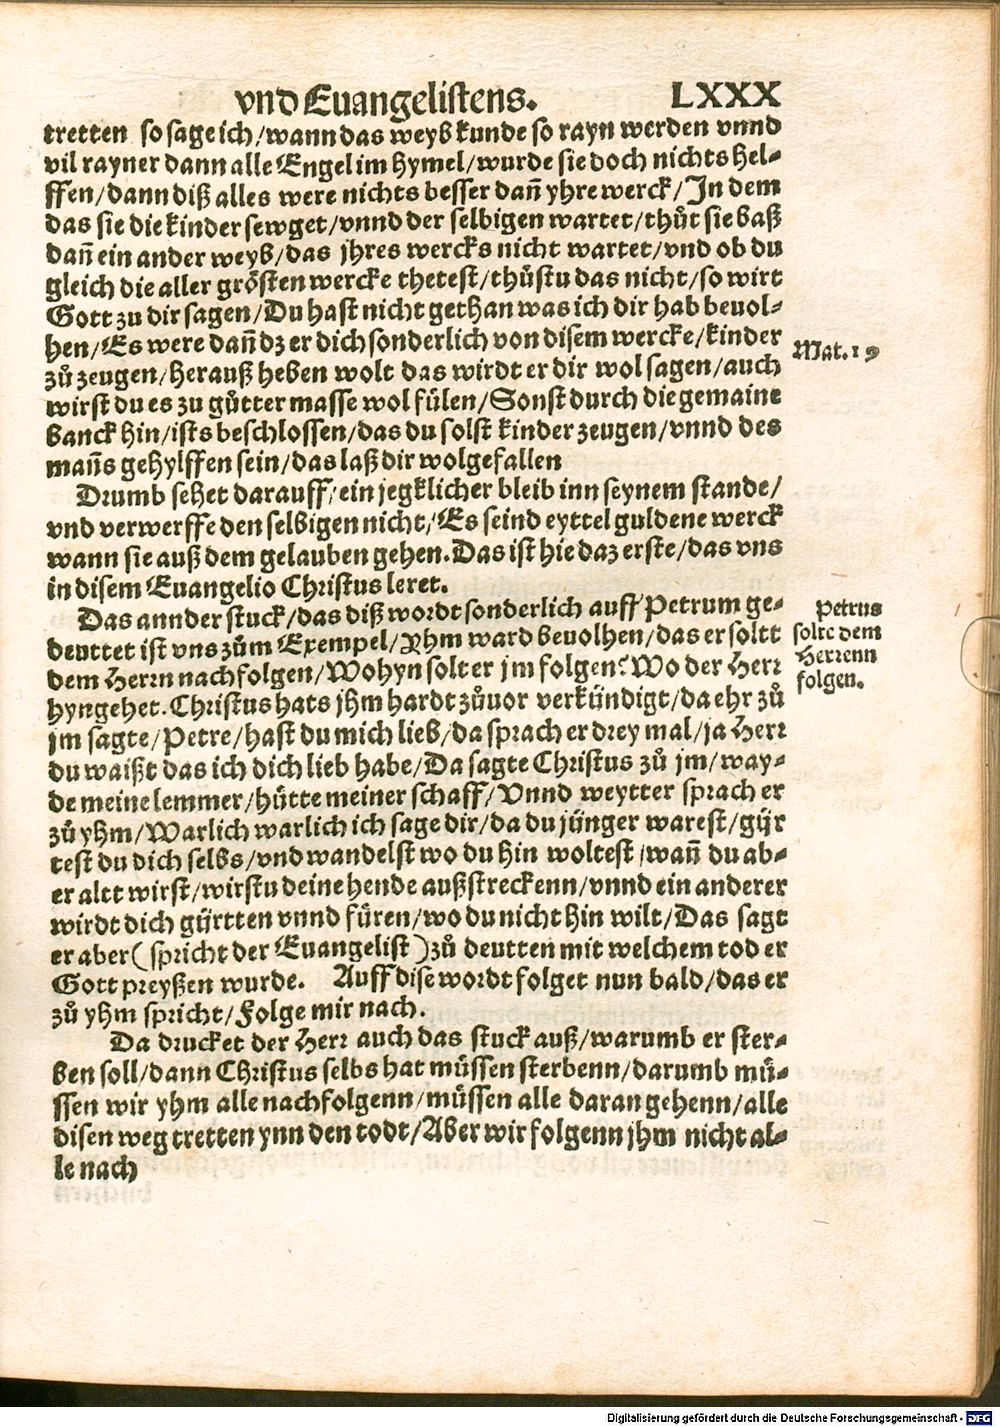 vnd Euangelistens. LXXX
tretten so sage ich/wann das weyb kunde so rayn werden vnnd
vil rayner dann alle Engel im hymel/wurde sie doch nichts hel-
ffen/dann diß alles were nichts besser dañ yhre werck/In dem
das sie die kinder sewget/vnnd der selbigen wartet/thůt sie baß
dañ ein ander weyb/das jhres wercks nicht wartet/vnd ob du
gleich die aller grösten wercke thetest/thůstu das nicht/so wirt
Gott zu dir sagen/Du hast nicht gethan was ich dir hab beuol-
hen/Es were dañ dz er dich sonderlich von disem wercke/kinder
zů zeugen/herauß heben wolt das wirdt er dir wol sagen/auch
wirst du es zu gůtter masse wol fülen/Sonst durch die gemaine
banck hin/ists beschlossen/das du solst kinder zeugen/vnnd des
mañs gehylffen sein/das laß dir wolgefallen
Mat.19
Drumb sehet darauff/ein jegklicher bleib inn seynem stande/
vnd verwerffe den selbigen nicht/Es seind eyttel guldene werck
wann sie auß dem gelauben gehen.Das ist hie daz erste/das vns
in disem Euangelio Christus leret.
Das annder stuck/das diß wordt sonderlich auff Petrum ge-
deuttet ist vns zům Exempel/Yhm ward beuolhen/das er soltt
dem Herrn nachfolgen/Wohyn solt er jm folgen?Wo der Herr
hyngehet.Christus hats jhm hardt zůuor verkündigt/da ehr zů
jm sagte/Petre/hast du mich lieb/da sprach er drey mal/ja Herr
du waißt das ich dich lieb habe/Da sagte Christus zů jm/way-
de meine lemmer/hütte meiner schaff/Vnnd weytter sprach er
zů yhm/Warlich warlich ich sage dir/da du jünger warest/gür
test du dich selbs/vnd wandelst wo du hin woltest/wañ du ab-
er altt wirst/wirstu deine hende außstreckenn/vnnd ein anderer
wirdt dich gürtten vnnd füren/wo du nicht hin wilt/Das sagt
er aber(spricht der Euangelist)zů deutten mit welchem tod er
Gott preyßen wurde. Auff dise wordt folget nun bald/das er
zů yhm spricht/Folge mir nach.
Petrus
solte dem
Herrenn
folgen.
Da drucket der Herr auch das stuck auß/warumb er ster-
ben soll/dann Christus selbs hat müssen sterbenn/darumb mü-
ssen wir yhm alle nachfolgenn/müssen alle daran gehenn/alle
disen weg tretten ynn den todt/Aber wir folgenn jhm nicht al-
le nach
Digitalisierung gefördert durch die Deutsche Forschungsgemeinschaft - DFG